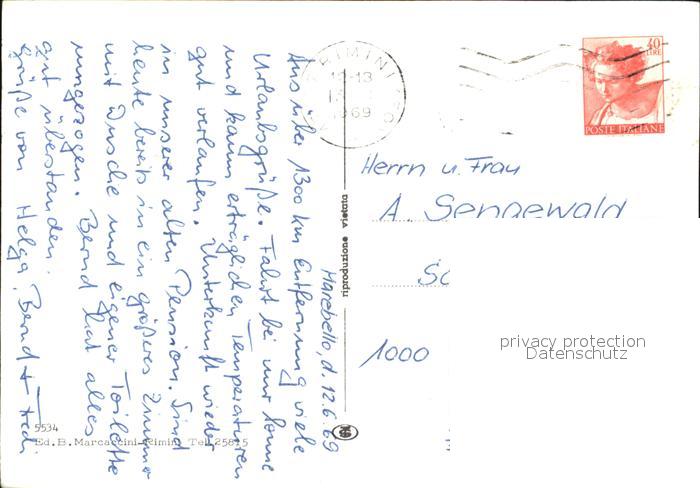 Marebello, d. 12.6.69
Aus über 1300 km Entfernung viele
Urlaubsgrüße. Fahrt bei nur Sonne
und kaum erträglichen Temperaturen
gut verlaufen. Unterkunft wieder
in unserer alten Pension. Sind
heute bereits in ein größeres Zimmer
mit Dusche und eigener Toilette
umgezogen. Bernd hat alles
gut überstanden.
Grüße von Helga, Bernd +
5534
Ed. B. Marcaccini-Rimini Tel. 25815
riproduzione vietata
RIMINI
12-13
1969
40
LIRE
POSTE ITALIANE
Herrn u. Frau
A. Sengewald
Sc
1000
privacy protection
Datenschutz